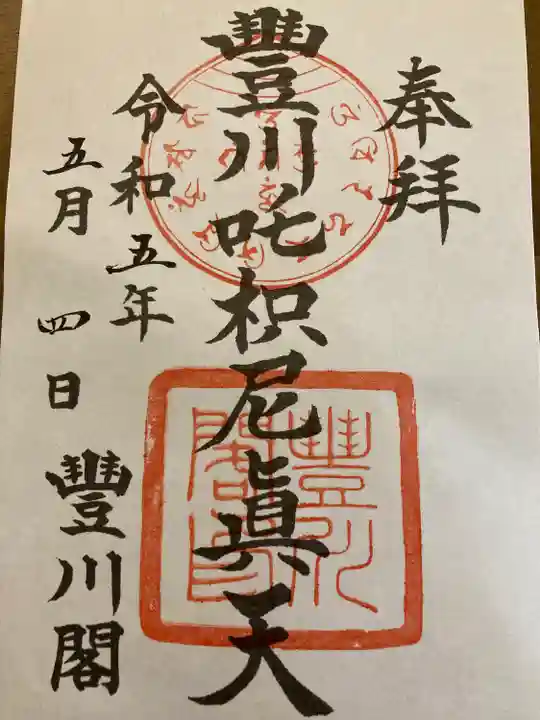 奉拝
豐川吒枳尼眞天
令和五年
五月四日
豐川閣
豐川閣印